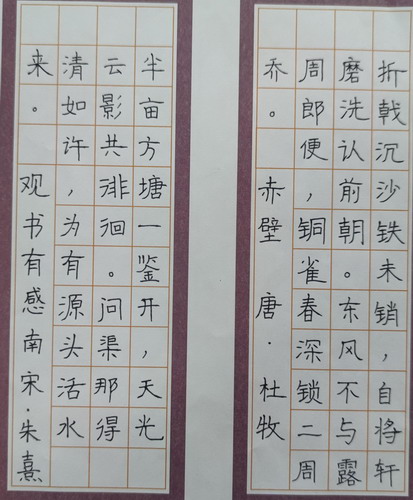 折戟沉沙铁未销，自将
磨洗认前朝。东风不与
周郎便，铜雀春深锁二
乔。 赤壁 唐·杜牧
周露轩
半亩方塘一鉴开，天光
云影共徘徊。问渠那得
清如许，为有源头活水
来。 观书有感南宋·朱熹